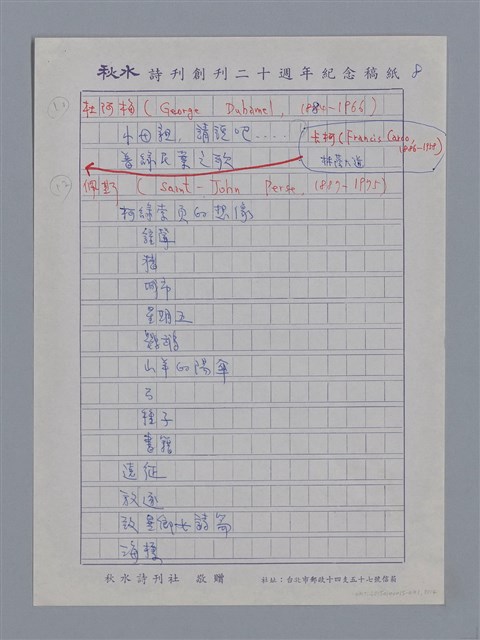 秋水 詩刊創刊二十週年紀念稿紙 8
杜阿梅 ( George Duhamel, 1884-1966)
小母親, 請說吧....
卡柯 (Francis Carco, 1886-1958)
善詠花葉之歌
佩斯 ( Saint-John Perse, 1887-1975)
柯綠索頁的想像
鐘聲
牆
城市
星期五
鸚鵡
山羊的陽傘
弓
種子
書籍
遠征
放逐
致異鄉女詩篇
海標
秋水詩刊社 敬贈 社址：台北市郵政十四支五十七號信箱